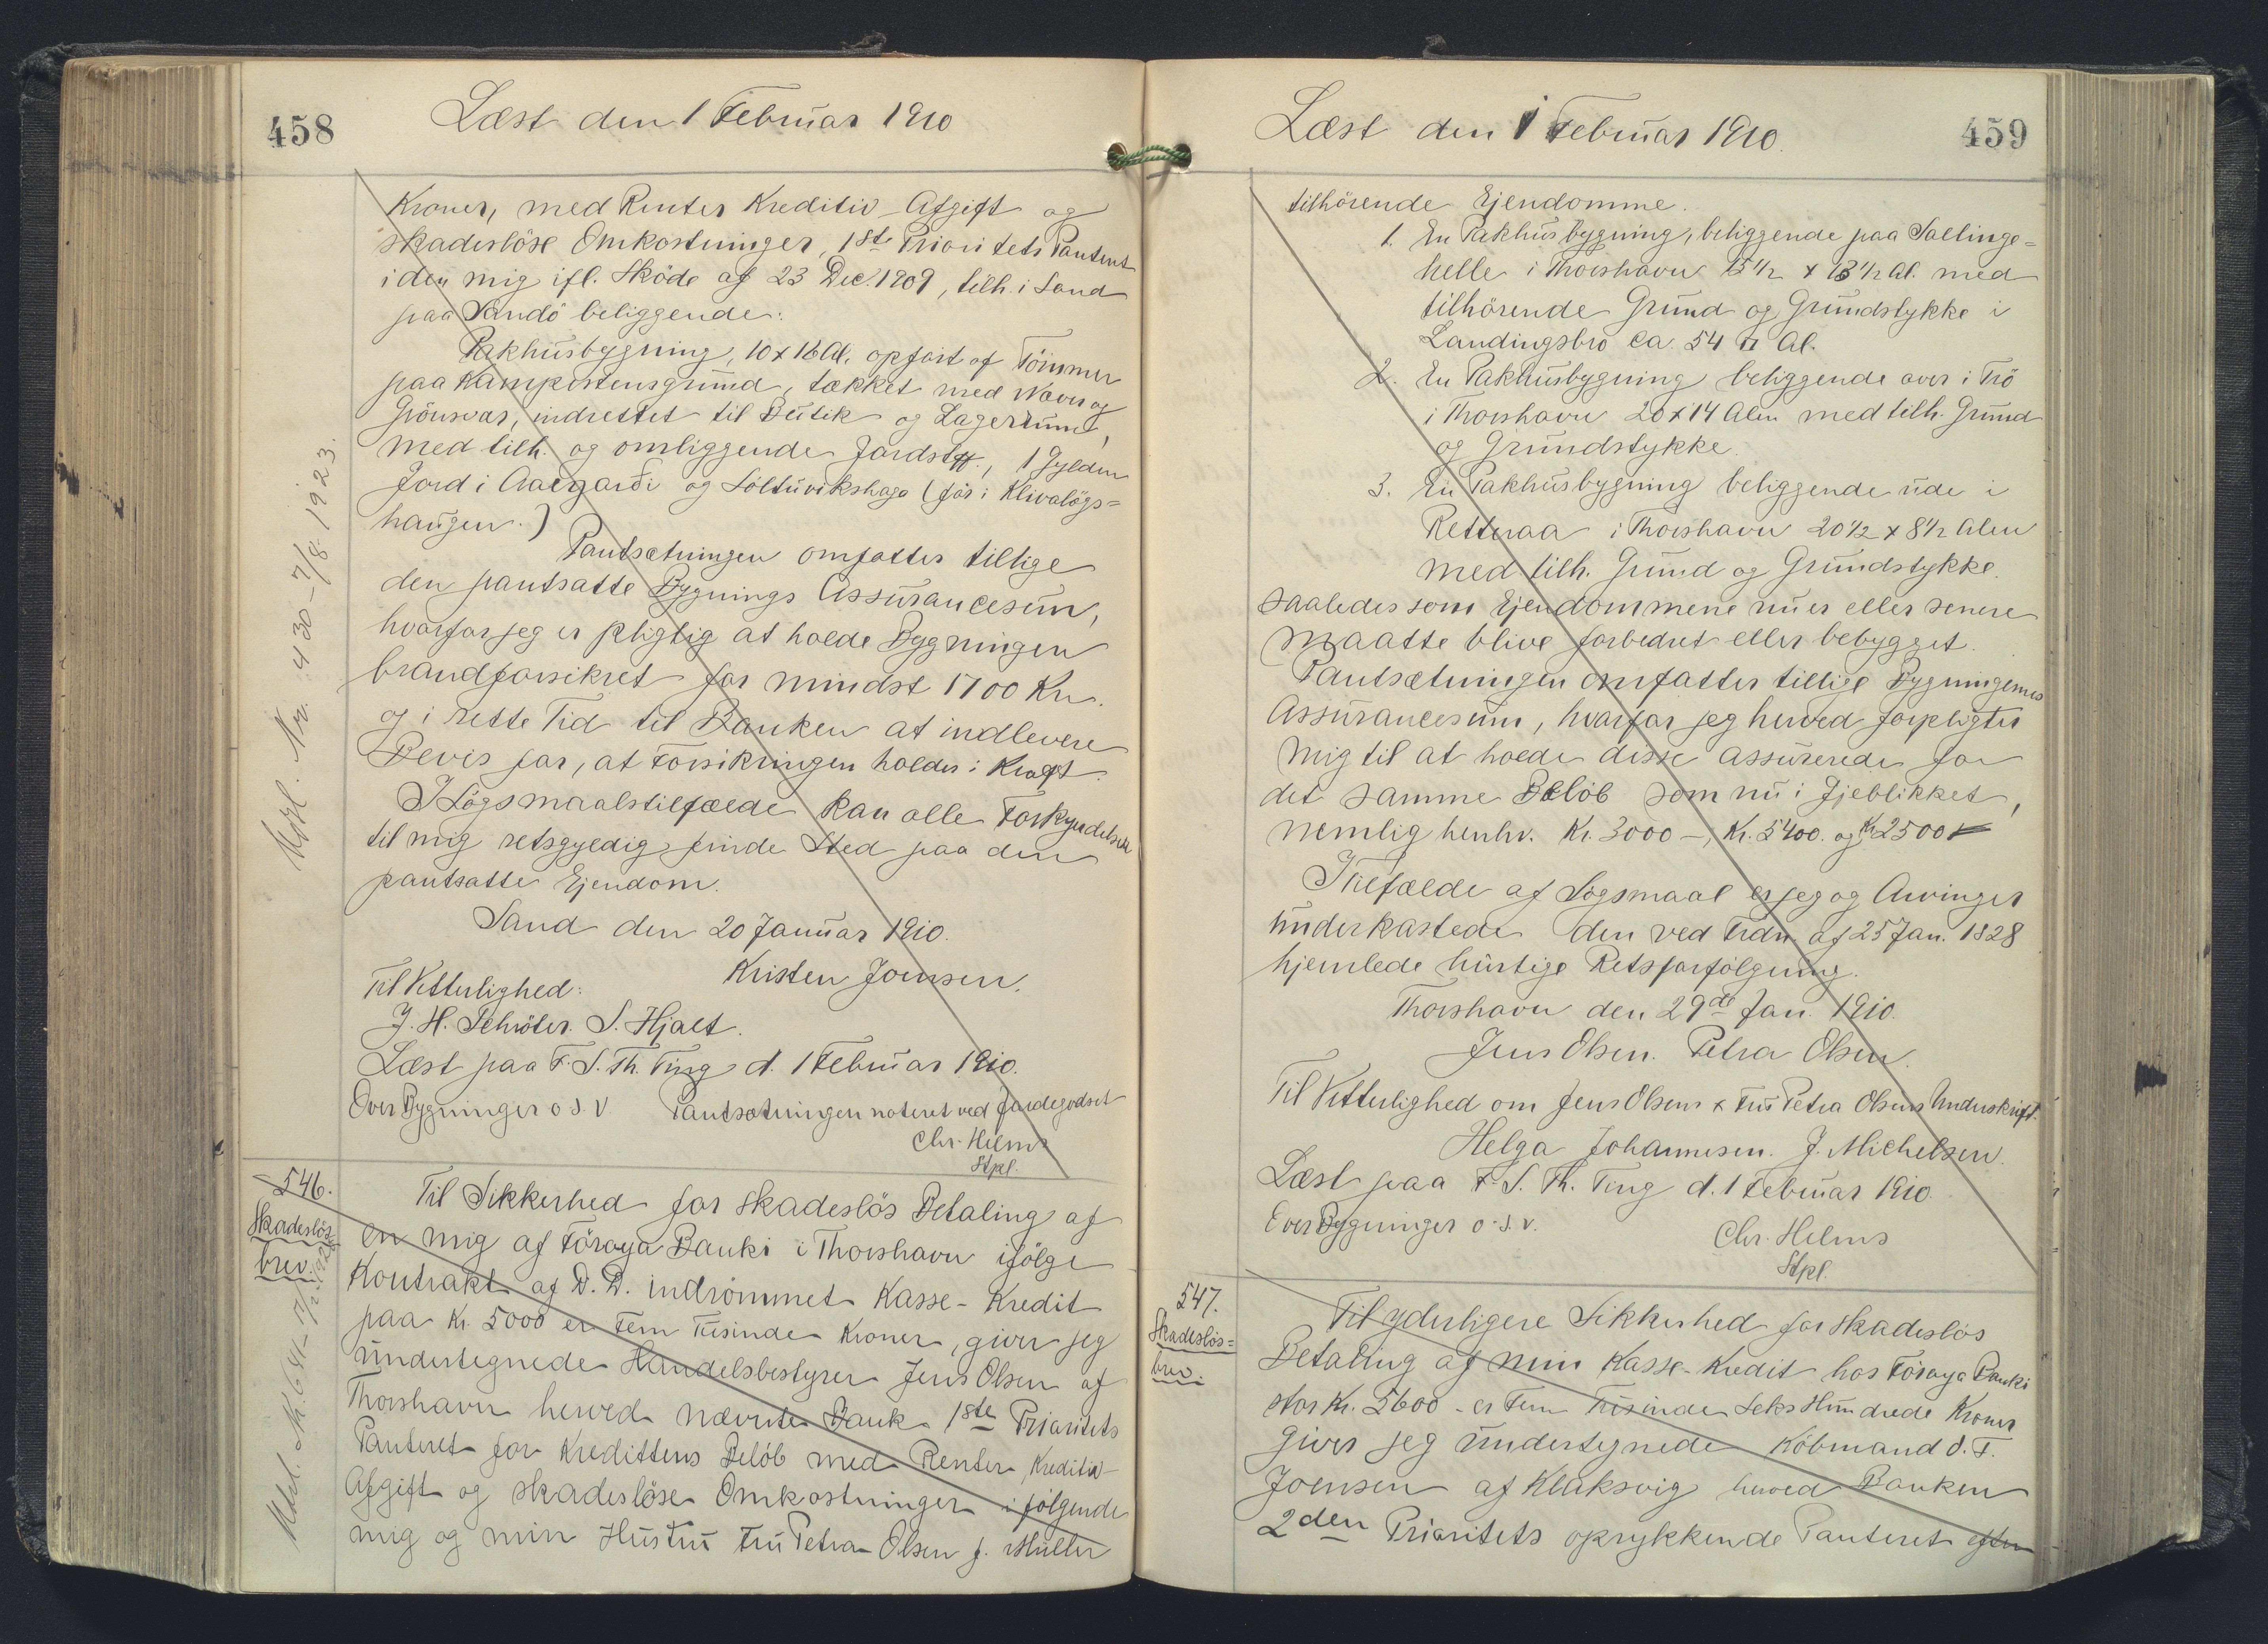 458
Læst den 1 Februar 1910
Kroner, med Renter Kreditiv-Afgift og
skadesløse Omkostninger, 1ste Prioritets Panteret
i den mig ifl. Skøde af 23 Dec. 1909, tilh. i Sand
paa Sandö beliggende:
Pakhusbygning, 10 x 16 Al. opført af Tömmer
paa Kampestensgrund, tækket med Næver og
Grönsvær, indrettet til Butik og Lagerrum,
med tilh. og omliggende Jordst., 1 Gylden
Jord i Aagarði og Söltuvikshaga (før i Klivalögs=
haugen.)
Pantsætningen omfatter tillige
den pantsatte Bygnings Assurancesum,
hvorfor jeg er pligtig at holde Bygningen
brandforsikret for mindst 1700 Kr.
og i rette Tid til Banken at indlevere
Bevis for, at Forsikringen holdes i Kraft.
I Sögsmaalstilfælde kan alle Forkyndelser
til mig retsgyldig finde Sted paa den
pantsatte Ejendom.
Sand den 20 Januar 1910.
Kristen Joensen.
Til Vitterlighed:
J. H. Schröter. S. Hjalt.
Læst paa F. S. Th. Ting d. 1 Februar 1910.
Over Bygninger o s. v. Pantsætningen noteret ved Jordegodset
Chr. Helms
Stpl.
Nr. 430 - 7/8. 1923.
546.
Skadeslös
brev.
Til Sikkerhed for skadeslös Betaling af
en mig af Föroya Banki i Thorshavn ifölge
Kontrakt af D. D. indrömmet Kasse-Kredit
paa Kr. 5000 er Fem Tusinde Kroner, giver jeg
undertegnede Handelsbestyrer Jens Olsen af
Thorshavn herved nævnte Bank 1ste Prioritets
Panteret for Kredittens Belöb med Renter, Kreditiv-
Afgift og skadeslöse Omkostninger i fölgende
mig og min Hustru Fru Petra Olsen f. Müller
459
Læst den 1 Februar 1910.
tilhörende Ejendomme.
1. En Pakhusbygning, beliggende paa Sallinge=
helle i Thorshavn 15 1/2 x 13 1/2 Al. med
tilhörende Grund og Grundstykke i
Landingsbro Ca. 54 □ Al.
2. En Pakhusbygning beliggende over i Trö
i Thorshavn 20 x 14 Alen med tilh. Grund
og Grundstykke.
3. En Pakhusbygning beliggende ude i
Retteraa i Thorshavn 20 1/2 x 8 1/2 Alen
med tilh. Grund og Grundstykke.
saaledes som Ejendommene nu er eller senere
maatte blive forbedret eller bebygget.
Pantsætningen omfatter tillige Bygningernes
Assurancesum, hvorfor jeg herved forpligter
mig til at holde disse assurerede for
det samme Belöb som nu i Öjeblikket,
nemlig henhv. Kr. 3000 -, Kr. 5400. og Kr 2500
I Tilfælde af Sögsmaal er jeg og Arvinger
underkastede den ved Frdn. af 25 Jan. 1828
hjemlede hurtige Retsforfölgning.
Thorshavn den 29de Jan. 1910.
Jens Olsen. Petra Olsen.
Til Vitterlighed om Jens Olsens & Fru Petra Olsens Underskrift.
Helga Johannesen. J. Michelsen.
Læst paa F. S. Th. Ting d. 1 Februar 1910.
Over Bygninger o. s. v.
Chr. Helms
Stpl.
547.
Skadeslös=
brev.
Til yderligere Sikkerhed for skadeslös
Betaling af min Kasse-Kredit hos Föroya Banki
stor Kr. 5600 - er Fem Tusinde Seks Hundrede Kroner
giver jeg undertegnede Köbmand S. F.
Joensen af Klaksvig herved Banken
2den Prioritets oprykkende Panteret efter